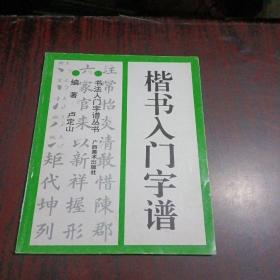 楷书入门字谱
书法入门字谱丛书
广西美术出版社
编著 卢定山
常怡炎清敢惜陳郡
六家官来以新祥握形
矩代坤列